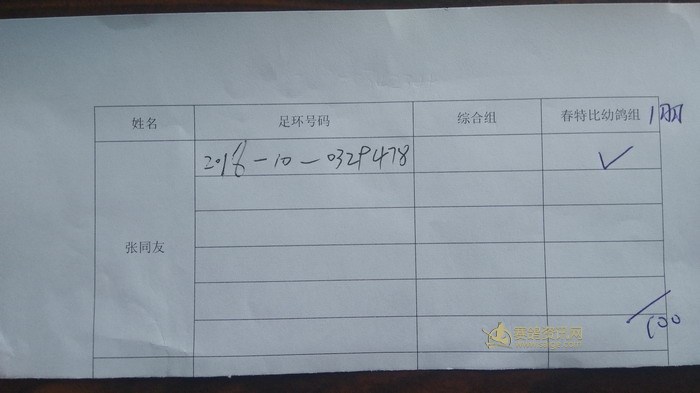 姓名 足环号码 综合组 春特比幼鸽组 1羽
2016-10-0329478 ✓
张同友
/100